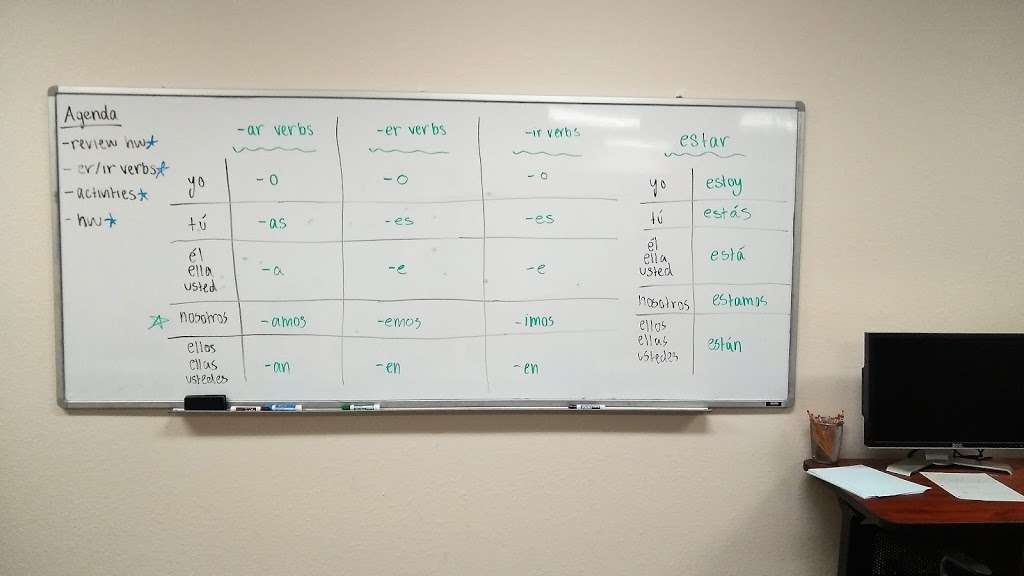 Agenda
-review hw
- er/ir verbs
- activities
- hw
-ar verbs -er verbs -ir verbs
yo -o -o -o
tú -as -es -es
él
ella -a -e -e
usted
nosotros -amos -emos -imos
ellos
ellas -an -en -en
ustedes
estar
yo estoy
tú estás
él
ella está
usted
nosotros estamos
ellos
ellas están
ustedes